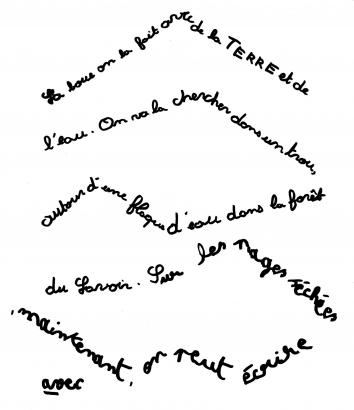 La boue on la fait avec de la TERRE et de
l'eau. On va la chercher dans un trou,
autour d'une flaque d'eau dans la forêt
du Savoir. Sur les pages séchées
maintenant, on peut écrire
avec